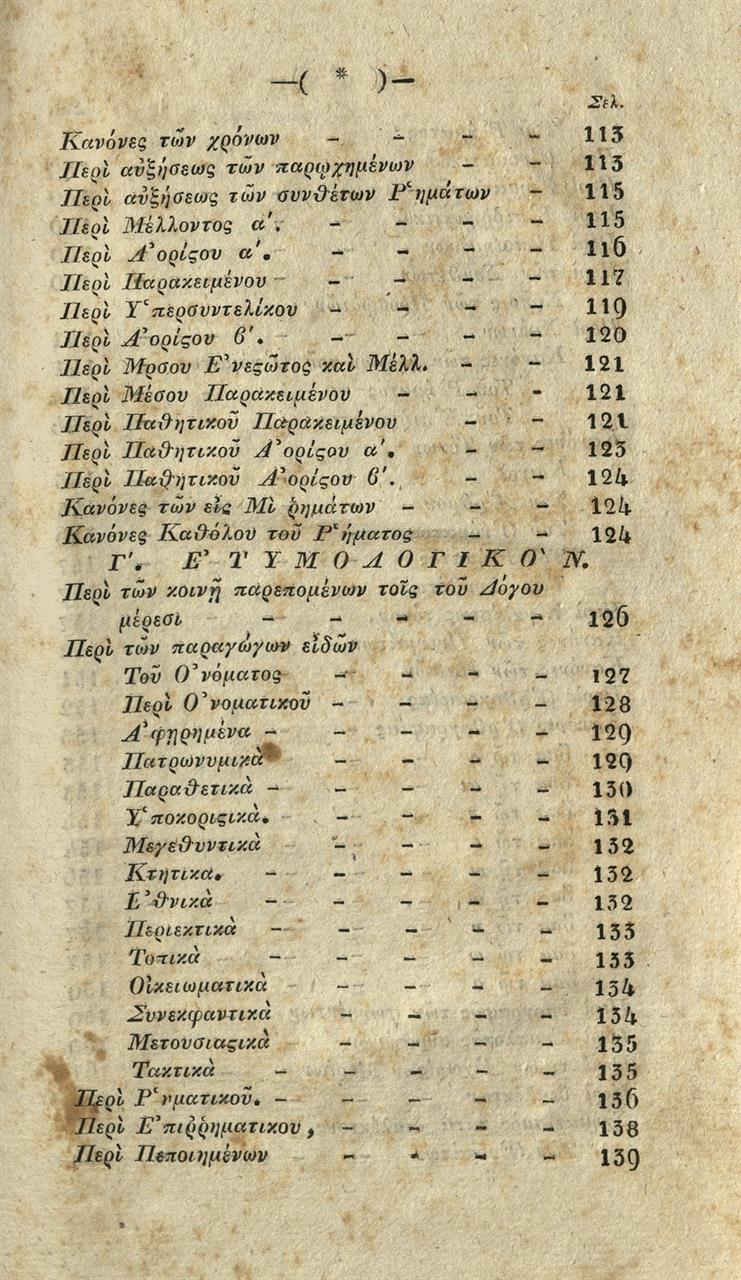 —( * )—
Σελ.
Κανόνες τῶν χρόνων - - - - 113
Περὶ αὐξήσεως τῶν παρῳχημένων - - 113
Περὶ αὐξήσεως τῶν συνθέτων Ῥημάτων - 115
Περὶ Μέλλοντος α'. - - - - 115
Περὶ Ἀορίϛου α'. - - - - 116
Περὶ Παρακειμένου - - - - 117
Περὶ Ὑπερσυντελίκου - - - - 119
Περὶ Ἀορίϛου β'. - - - - 120
Περὶ Μρσου Ἐνεϛῶτος καὶ Μέλλ. - - 121
Περὶ Μέσου Παρακειμένου - - - 121
Περὶ Παθητικοῦ Παρακειμένου - - 121
Περὶ Παθητικοῦ Ἀορίϛου α'. - - 123
Περὶ Παθητικοῦ Ἀορίϛου β'. - - 124
Κανόνες τῶν εἰς Μὶ ῥημάτων - - - 124
Κανόνες Καθόλου τοῦ Ῥήματος - - 124
Γ'. ἘΤΥΜΟΛΟΓΙΚΟ`Ν.
Περὶ τῶν κοινῇ παρεπομένων τοῖς τοῦ Λόγου
μέρεσι - - - - - 126
Περὶ τῶν παραγώγων εἰδῶν
Τοῦ Ὀνόματος - - - - 127
Περὶ Ὀνοματικοῦ - - - - 128
Ἀφῃρημένα - - - - - 129
Πατρωνυμικὰ - - - - 129
Παραθετικὰ - - - - - 130
Ὑποκοριϛικά. - - - - 131
Μεγεθυντικὰ - - - - 132
Κτητικα. - - - - - 132
Ἐθνικὰ - - - - - 132
Περιεκτικὰ - - - - - 133
Τοπικὰ - - - - - 133
Οἰκειωματικὰ - - - - 134
Συνεκφαντικὰ - - - - 134
Μετουσιαϛικὰ - - - - 135
Τακτικὰ - - - - - 135
Περὶ Ῥηματικοῦ. - - - - - 136
Περὶ Ἐπιῤῥηματικου, - - - - 138
Περὶ Πεποιημένων - - - - 139